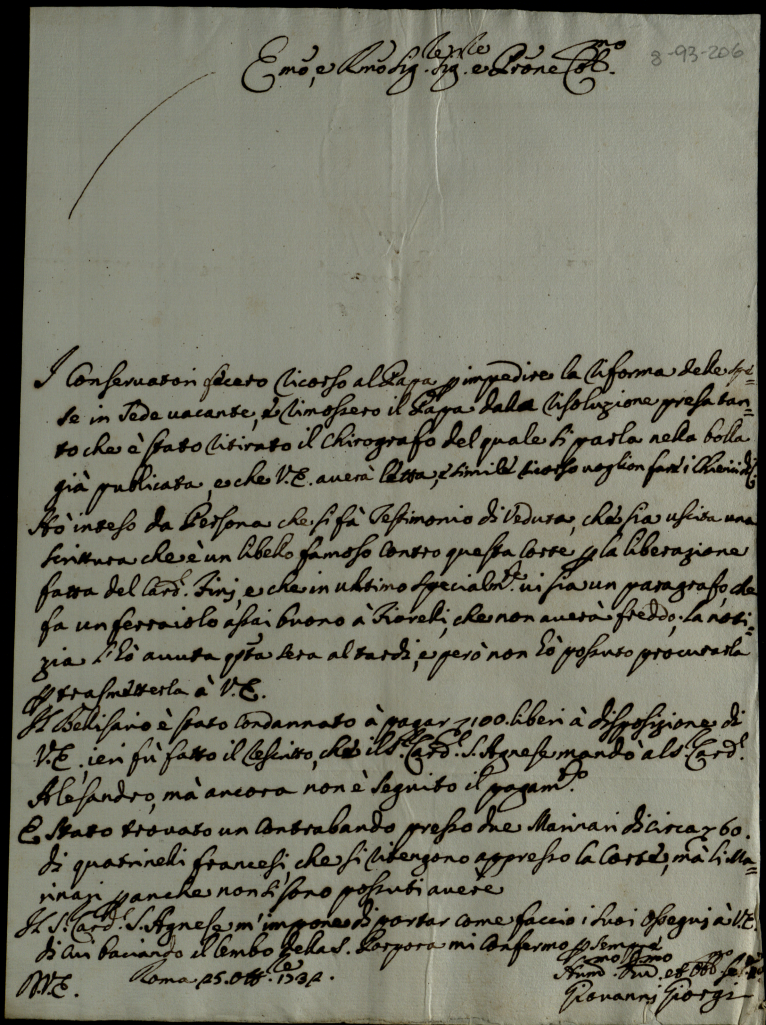 8-93-206
Emo, e Rmo Sig.re Sig.re e Prone Colmo.
I Conservatori fecero ricorso al Papa p impedire la riforma delle spe=
se in Sede vacante, e rimossero il Papa dalla risoluzione presa tan=
to che è stato ritirato il Chirografo del quale si parla nella bolla
già publicata, e che V.E. averà letta, e simile ricorso voglion fare i Chierici di
Hò inteso da Persona che si fà Testimonio di veduta, che sia uscita una
scrittura che è un libello famoso contro questa Corte p la liberazione
fatta del Card.l Fini, e che in ultimo specialm.te vi sia un paragrafo, che
fa un ferraiolo assai buono à Fiorelli, che non averà freddo; la noti=
zia l'hò avuta qta sera al tardi, e però non hò possuto procurarla
p trasmetterla à V.E.
Il Belisario è stato condannato à pagar 100. liberi à disposizione di
V.E., ieri fù fatto il rescritto, che il S.r Card.l S. Agnese mandò al S.r Card.l
Alesandro, mà ancora non è seguito il pagam.to
E stato trovato un contrabando presso due Marinari di circa 60.
di quatrinelli francesi, che si ritengono appresso la Corte, mà li Ma=
rinari p anche non si sono possuti avere
Il S.r Card.l S. Agnese m'impone di portar come faccio i suoi ossequj à V.E.
di cui baciando il lembo della S. Porpora mi confermo p sempre
D.V.E. Roma 25. Ott.re 1732.
Hum.mo Dev.mo et Obb.mo
Giovanni Giorgi